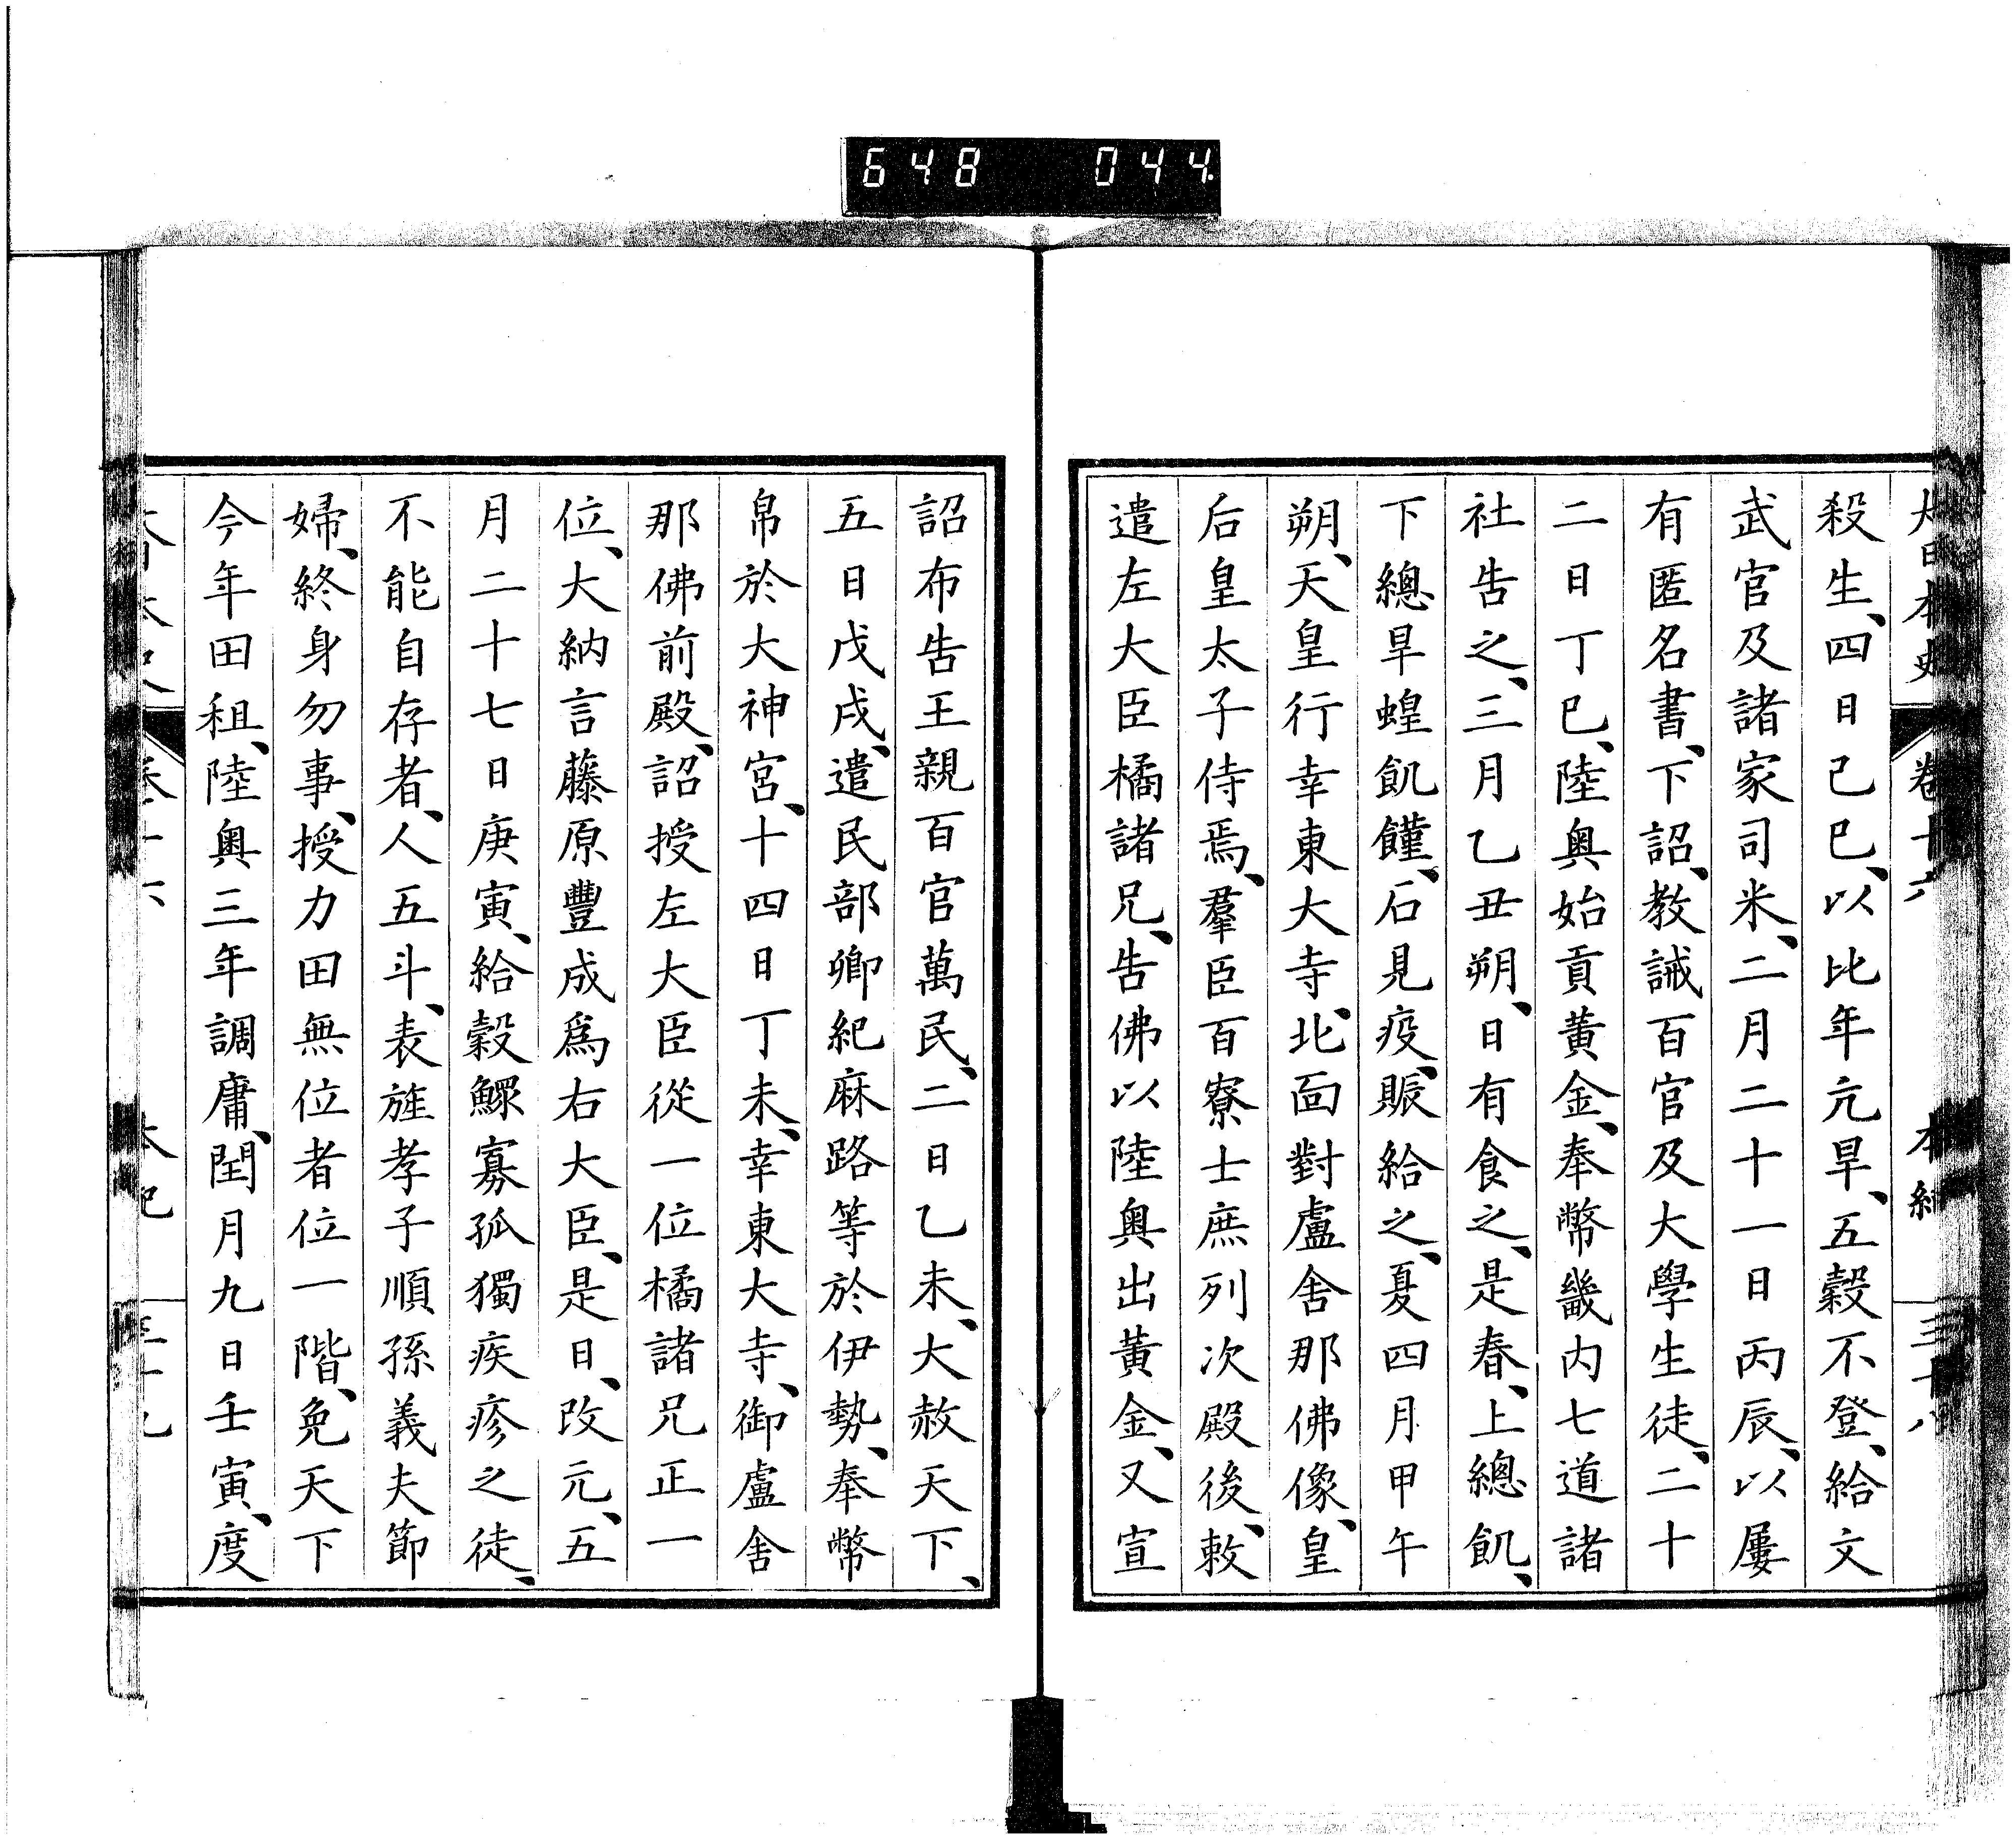 648 044
大日本史 卷十六 本紀 三十八
殺生、四日己巳、以比年亢旱、五穀不登、給文
武官及諸家司米、二月二十一日丙辰、以屢
有匿名書、下詔、教誡百官及大學生徒、二十
二日丁巳、陸奧始貢黃金、奉幣畿内七道諸
社告之、三月乙丑朔、日有食之、是春、上總飢、
下總旱蝗飢饉、石見疫、賑給之、夏四月甲午
朔、天皇行幸東大寺、北面對盧舍那佛像、皇
后皇太子侍焉、羣臣百寮士庶列次殿後、敕
遣左大臣橘諸兄、告佛以陸奧出黃金、又宣
詔布告王親百官萬民、二日乙未、大赦天下、
五日戊戌、遣民部卿紀麻路等於伊勢、奉幣
帛於大神宮、十四日丁未、幸東大寺、御盧舍
那佛前殿、詔授左大臣從一位橘諸兄正一
位、大納言藤原豐成爲右大臣、是日、改元、五
月二十七日庚寅、給穀鰥寡孤獨疾疹之徒、
不能自存者、人五斗、表旌孝子順孫義夫節
婦、終身勿事、授力田無位者位一階、免天下
今年田租、陸奧三年調庸、閏月九日壬寅、度
大日本史 卷十六 本紀 三十九